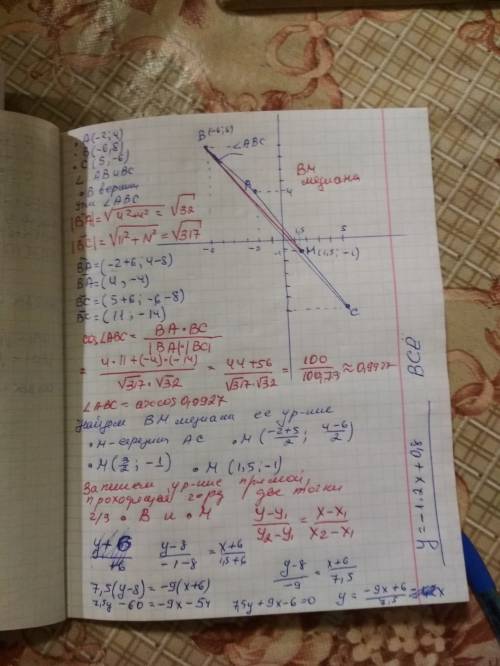 • A(-2; 4)
• B(-6; 8)
• C(5; -6)
∠ AB и BC
• B верши
∠ABC
|BA| = √4²+4² = √32
|BC| = √11²+14² = √317
BA = (-2+6; 4-8)
BA = (4; -4)
BC = (5+6; -6-8)
BC = (11; -14)
cos∠ABC = BA • BC / |BA|•|BC|
= 4•11+(-4)•(-14) / √317 • √32 = 44+56 / √317•√32 = 100 / 100,72 ≈ 0,9927
∠ABC = arccos 0,0927
Найдем BM медиана её ур-ние
• M - середина AC • M(-2+5/2; 4-6/2)
• M(3/2; -1) • M(1,5; -1)
Запишем ур-ние прямой,
проходящей через две точки
• B и • M
y-y₁ / y₂-y₁ = x-x₁ / x₂-x₁
y+6 / +6
y-8 / -1-8 = x+6 / 1,5+6
y-8 / -9 = x+6 / 7,5
7,5(y-8) = -9(x+6)
7,5y - 60 = -9x - 54
7,5y + 9x - 6 = 0
y = -9x+6 / 7,5
B(-6; 8)
∠ABC
BM
медиана
A
4
-6
-2
1,5
5
-1
M(1,5; -1)
C
y = -1.2x + 0,8
ВСЁ